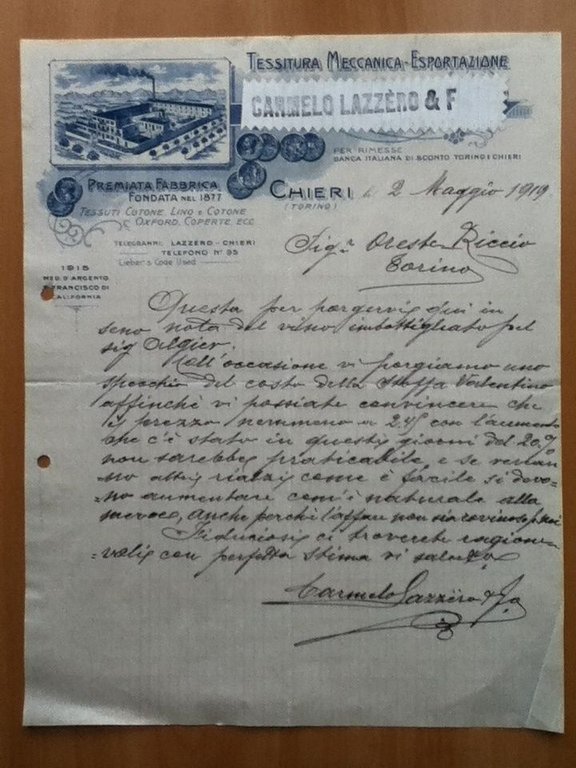 TESSITURA MECCANICA-ESPORTAZIONE
CARMELO LAZZÈRO & F
PER RIMESSE
BANCA ITALIANA DI SCONTO TORINO E CHIERI
PREMIATA FABBRICA
FONDATA NEL 1877
TESSUTI COTONE, LINO E COTONE
OXFORD, COPERTE, ECC.
CHIERI li 2 Maggio 1919
(TORINO)
TELEGRAMMI: LAZZÈRO-CHIERI
TELEFONO N° 35
Lieber's Code Used
1915
MED. D'ARGENTO
S. FRANCISCO DI
CALIFORNIA
Sig.r Oreste Riccio
Torino
Questa per porgervi qui in
seno nota del vino imbottigliato pel
sig Algier.
Coll'occasione vi porgiamo uno
specchio del costo della stoffa Valentino
affinchè vi possiate convincere che
il prezzo nemmeno a 2.45 con l'aumento
che c'è stato in questi giorni del 20%
non sarebbe praticabile, e se verran-
-no altri rialzi come è facile si devo-
-no aumentare com'è naturale alla
merce, anche perchè l'affare non sia rovinoso p noi
Fiduciosi ci troverete ragione-
-voli con perfetta stima vi saluto
Carmelo Lazzèro & F.